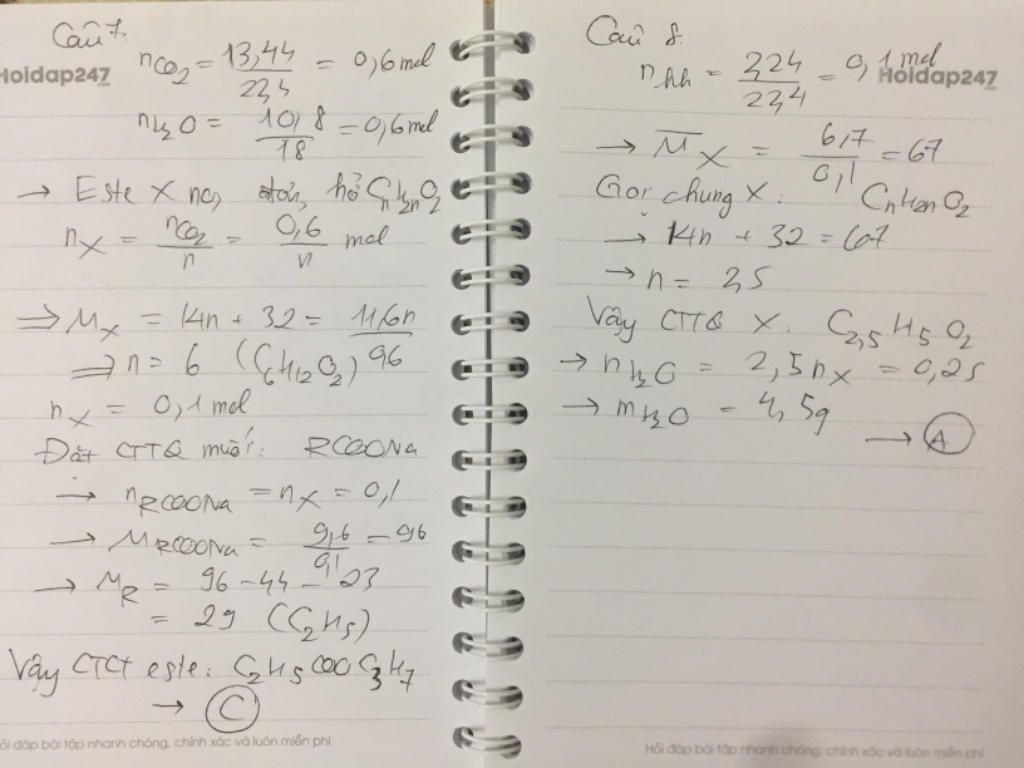 Câu 7.
Hoidap247
nCO2 = 13,44 / 22,4 = 0,6 mol
nH2O = 10,8 / 18 = 0,6 mol
→ Este X no, đơn, hở CnH2nO2
nX = nCO2 / n = 0,6 / n mol
⇒ MX = 14n + 32 = 11,6n / 0,6
⇒ n = 6 (C6H12O2)
nX = 0,1 mol
Đặt CTTQ muối: RCOONa
→ nRCOONa = nX = 0,1
→ MRCOONa = 9,6 / 0,1 = 96
→ MR = 96 - 44 - 23
= 29 (C2H5)
Vậy CTCT este: C2H5COOC3H7
→ C
Hỏi đáp bài tập nhanh chóng, chính xác và luôn miễn phí
Câu 8.
nhh = 2,24 / 22,4 = 0,1 mol
Hoidap247
→ M̅X = 6,7 / 0,1 = 67
Gọi chung X: CnH2nO2
→ 14n + 32 = 67
→ n = 2,5
Vậy CTTQ X: C2,5H5O2
→ nH2O = 2,5nX = 0,25
→ mH2O = 4,5g
→ A
Hỏi đáp bài tập nhanh chóng, chính xác và luôn miễn phí